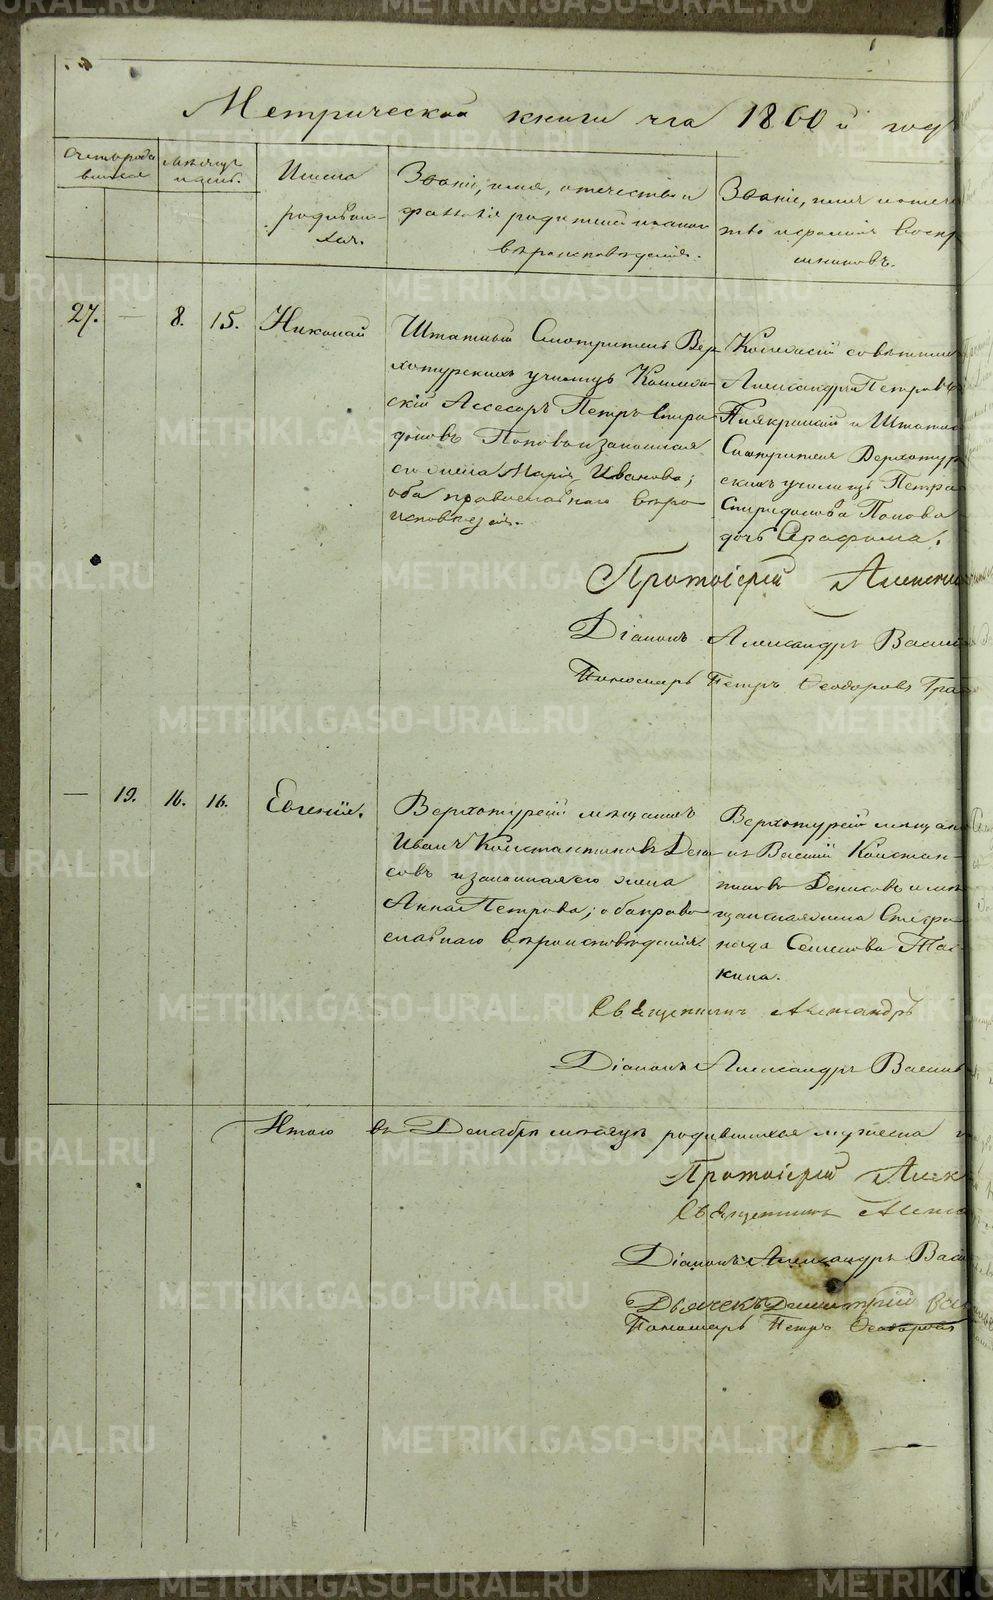 Метрической книги на 1860й годъ
Счетъ роди
вшихся
Мѣсяцъ
и день.
Имена
родивши-
хся.
Званіе, имя, отечество и
фамилія родителей и какого
вѣроисповѣданія.
Званіе, имя и отече
ство и фамилія воспрі
емниковъ.
27. — 8. 15. Николай
Штатный Смотритель Вер-
хотурскихъ училищъ Коллеж-
скій Ассесоръ Петръ Спири-
доновъ Поповъ и законная
его жена Марія Иванова;
оба православнаго вѣро-
исповѣданія.
Коллежскій совѣтникъ
Александръ Петровъ
и Штатнаго
Смотрителя Верхотур
скихъ училищъ Петра
Спиридонова Попова
дочь Серафима.
Протоіерей Алексій
Діаконъ Александръ Васил
Пономарь Петръ Ѳеодоровъ
— 19. 16. 16. Евгенія.
Верхотурскій мѣщанинъ
Иванъ Константиновъ Дени-
совъ и законная его жена
Анна Петрова; оба право-
славнаго вѣроисповѣданія.
Верхотурскій мѣщан
нъ Василій Констан-
тиновъ Денисовъ и мѣ
щанская жена Стефа-
нида Семенова
кина.
Священникъ Александръ
Діаконъ Александръ Васил
Итого въ Декабрѣ мѣсяцѣ родившихся мужеска
Протоіерей Алек
Священникъ Алекса
Діаконъ Александръ Васи
Дьячекъ Димитрій
Пономарь Петръ Ѳеодоровъ
METRIKI.GASO-URAL.RU